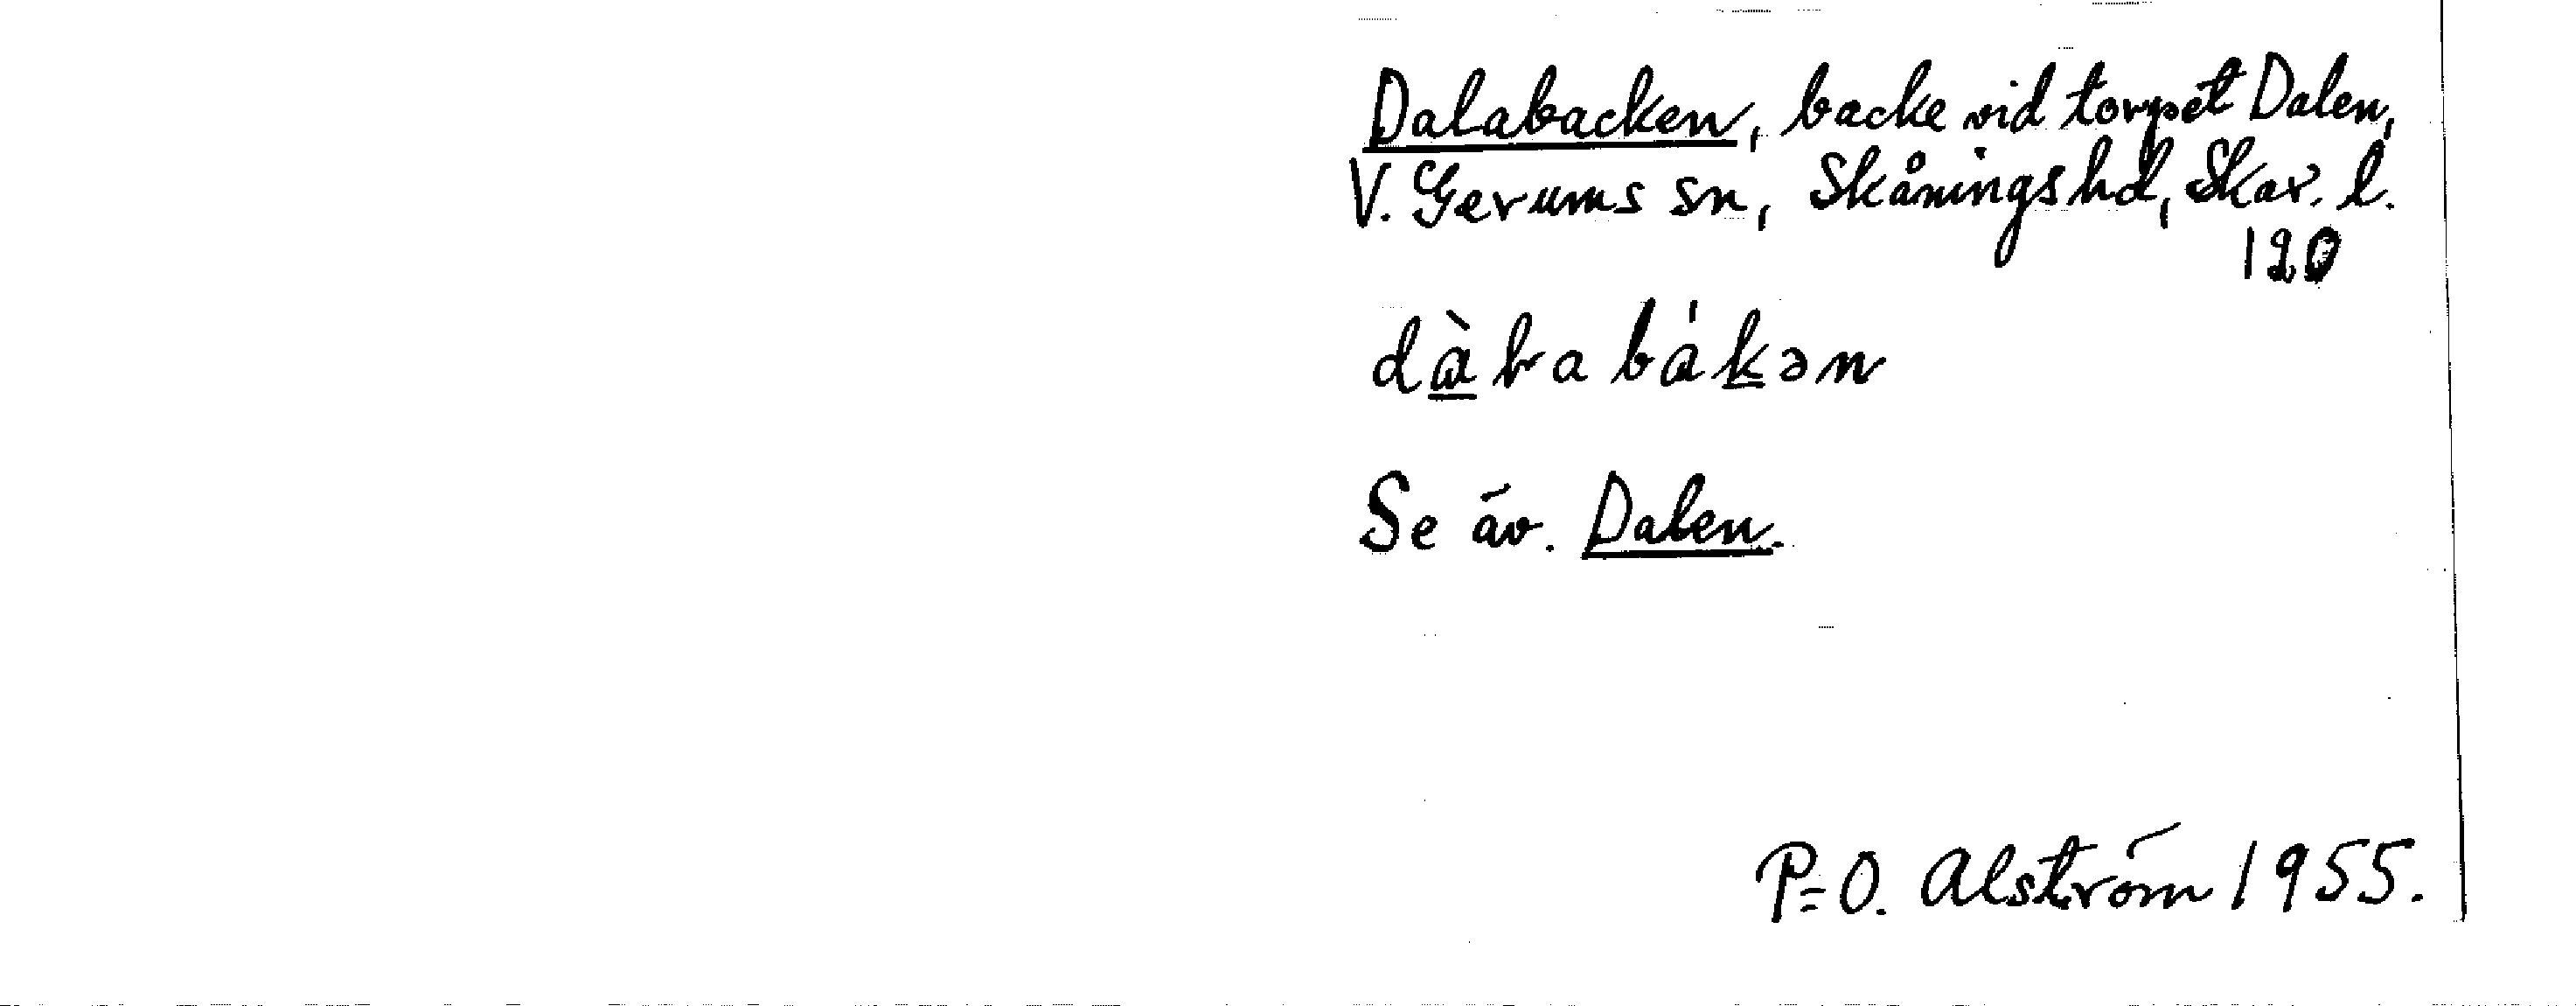 Dalabacken, backe vid torpet Dalen,
V. Gerums sn, Skånings hd, Skar. l.
120
dàɫabákən
Se äv. Dalen.
P=O. Alström 1955.